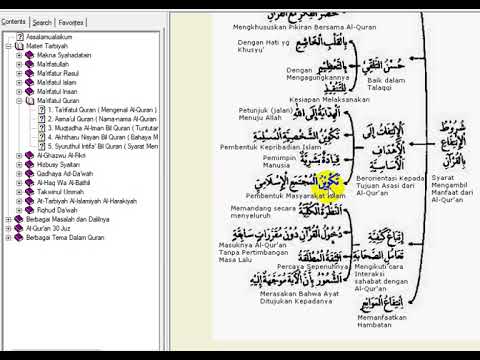 Contents
Search
Favorites
Assalamualaikum
Materi Tarbiyah
Makna Syahadatain
Ma'rifatullah
Ma'rifatul Rasul
Ma'rifatul Islam
Ma'rifatul Insan
Ma'rifatul Quran
1. Ta'rifatul Quran ( Mengenal Al-Quran )
2. Asma'ul Quran ( Nama-nama Al-Quran
3. Muqtadha Al-Iman Bil Quran ( Tuntutan
4. Akhtharu Nisyan Bil Quran ( Bahaya M
5. Syuruthul Intifa' Bil Quran ( Syarat Men
Al-Ghaswu Al-Fikri
Hisbusy Syaithan
Qadhaya Ad-Da'wah
Al-Haq Wa Al-Bathil
Takwinul Ummah
At-Tarbiyah Al-Islamiyah Al-Harakiyah
Fiqhud Da'wah
Berbagai Masalah dan Dalilnya
Al-Qur'an 30 Juz
Berbagai Tema Dalam Quran
حَصْرُ الفِكْرِ مَعَ القُرْآنِ
Mengkhususkan Pikiran Bersama Al-Quran
بِالْقَلْبِ الْخَاشِعِ
Dengan Hati yg
Khusyu'
حُسْنُ التَّلَقِّي
بِالتَّعْظِيْمِ
Dengan
Mengagungkannya
Baik dalam
Talaqqi
لِلتَّنْفِيْذِ
Kesiapan Melaksanakan
الْهِدَايَةُ إِلَى اللهِ
Petunjuk (jalan)
Menuju Allah
تَكْوِيْنُ الشَّخْصِيَّةِ الْمُسْلِمَةِ
Pembentuk Kepribadian Islam
قِيَادَةُ بَشَرِيَّةٍ
Pemimpin
Manusia
تَكْوِيْنُ الْمُجْتَمَعِ الْإِسْلَامِيِّ
Pembentuk Masyarakat Islam
الْإِلْتِفَاتُ إِلَى
الْأَهْدَافِ
الْأَسَاسِيَّةِ
Berorientasi Kepada
Tujuan Asasi dari
Al-Qur'an
شُرُوْطُ
الْإِنْتِفَاعِ
بِالْقُرْآنِ
Syarat
Mengambil
Manfaat dari
Al-Qur'an
النَّظْرَةُ الْكُلِّيَّةُ
Memandang secara
menyeluruh
دُخُوْلُ الْقُرْآنِ دُوْنَ مُقَرَّرَاتٍ سَابِقَةٍ
Masuknya Al-Qur'an Tanpa Pertimbangan
Masa Lalu
الثِّقَةُ الْمُطْلَقَةُ
Percaya Sepenuhnya
الشُّعُوْرُ بِأَنَّ الْآيَةَ مُوَجَّهَةٌ إِلَيْهِ
Merasakan Bahwa Ayat
Ditujukan Kepadanya
إِتِّبَاعُ كَيْفِيَّةِ
تَعَامُلِ الصَّحَابَةِ
Mengikuti cara
Interaksi
sahabat dengan
Al-Qur'an
إِنْتِفَاعُ الْمَوَانِعِ
Memanfaatkan
Hambatan